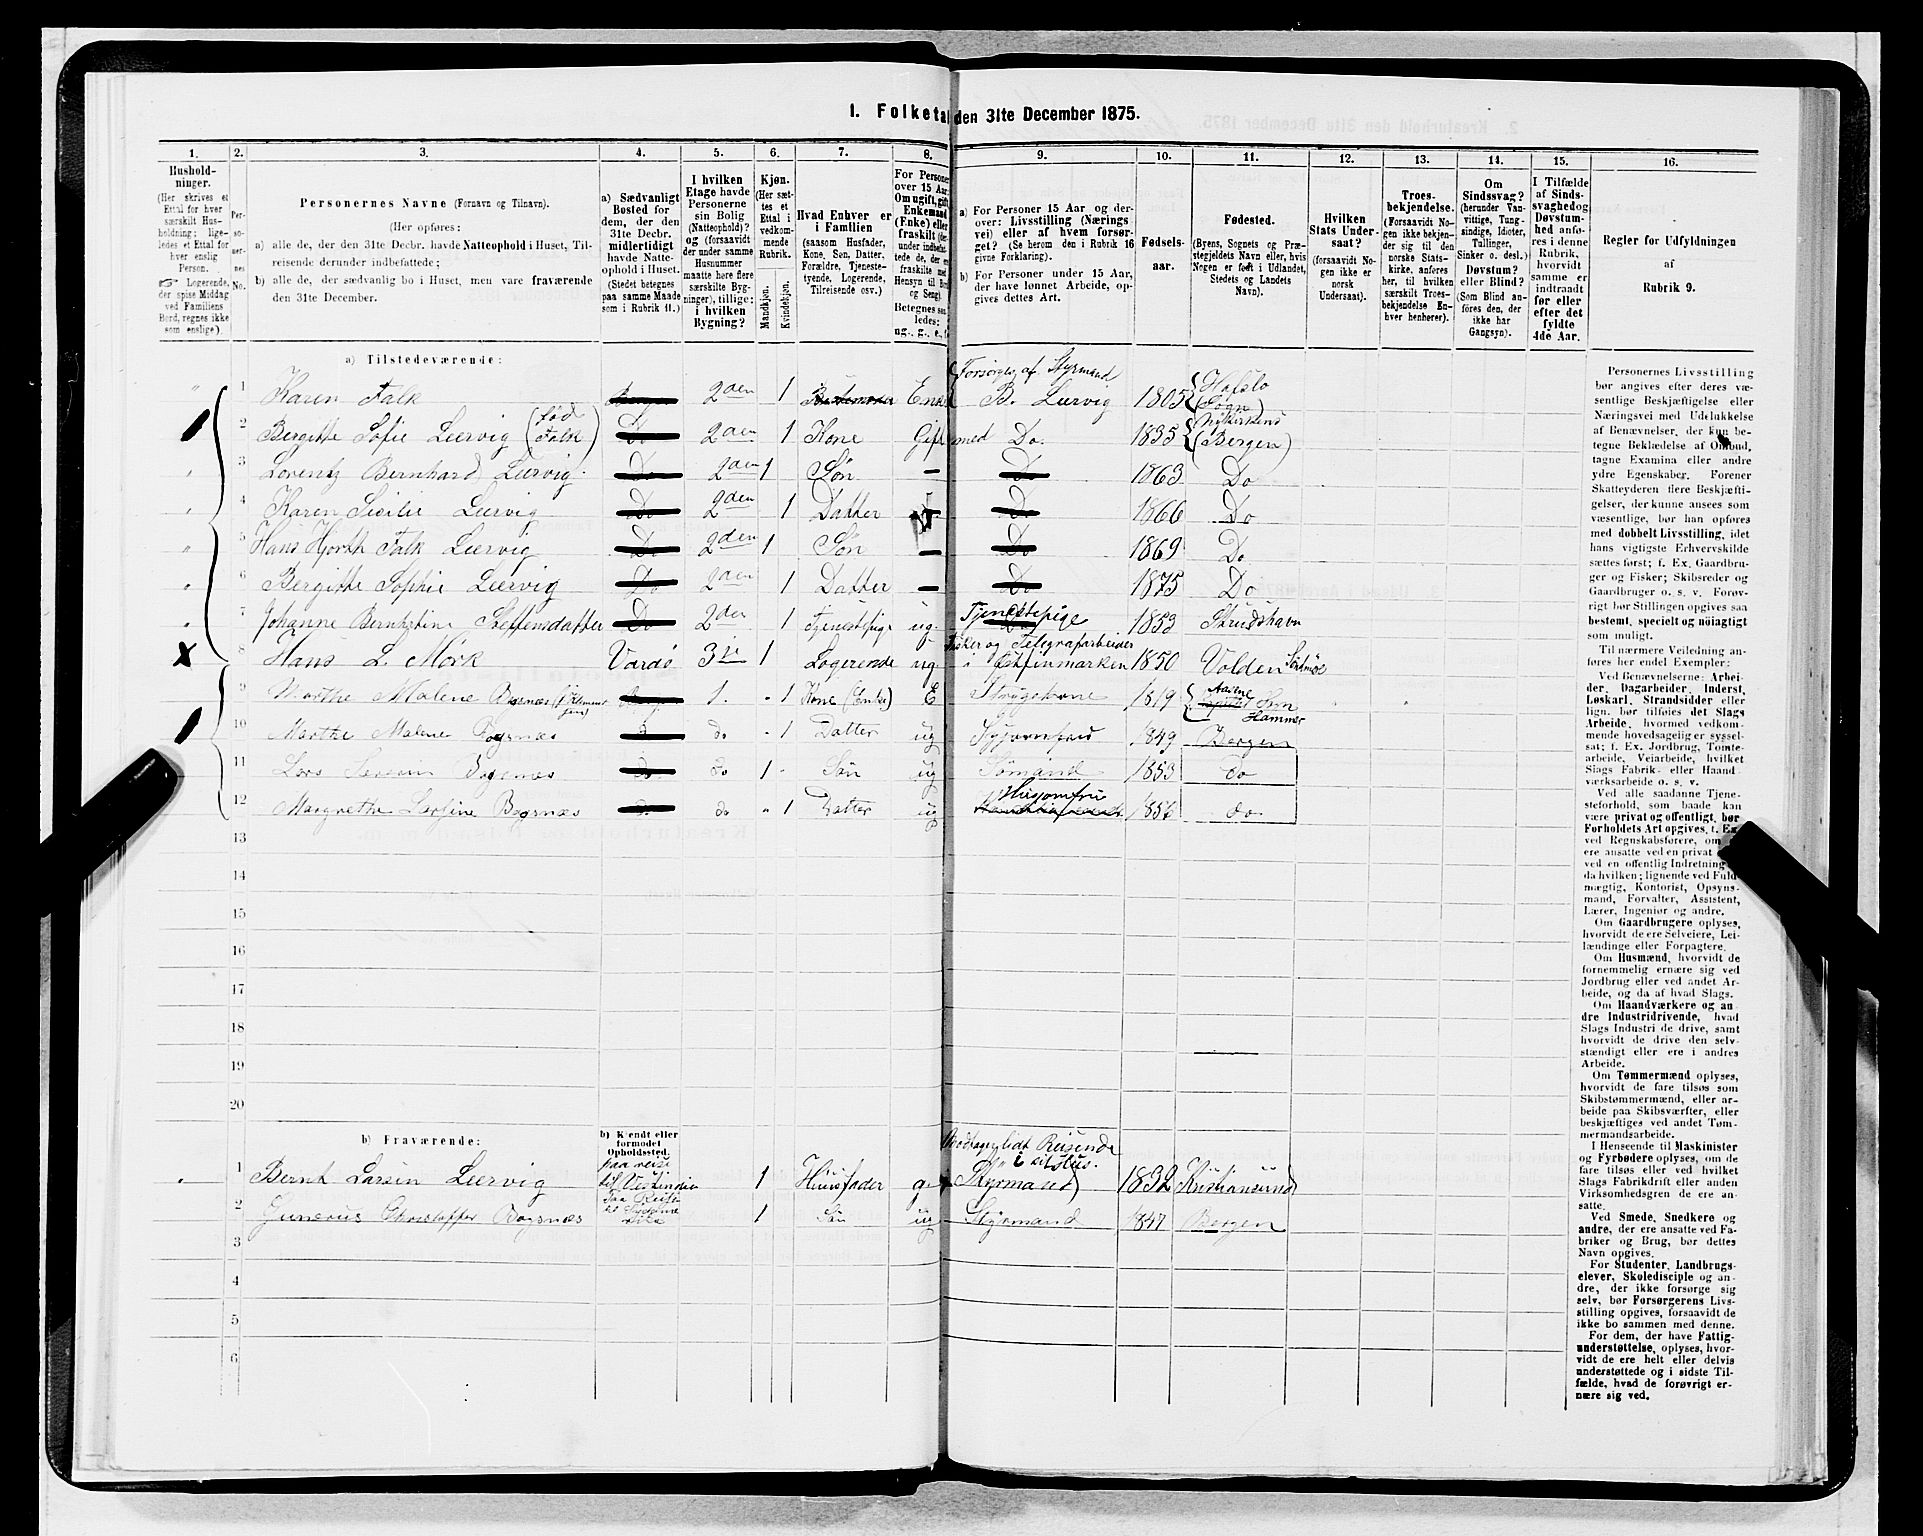 1. Folketal den 31te December 1875.
1. 2. 3. 4. 5. 6. 7. 8. 9. 10. 11. 12. 13. 14. 15. 16.
Hushold-
ninger.
(Her skrives et
Ettal for hver
særskilt Hus-
holdning; lige-
ledes et Ettal for
hver enslig
Person.
☞ Logerende,
der spise Middag
ved Familiens
Bord, regnes ikke
som enslige).
Per-
so-
ner-
nes
No.
Personernes Navne (Fornavn og Tilnavn).
(Her opføres:
a) alle de, der den 31te Decbr. havde Natteophold i Huset, Til-
reisende derunder indbefattede;
b) alle de, der sædvanlig bo i Huset, men vare fraværende
den 31te December.
a) Sædvanligt
Bosted for
dem, der den
31te Decbr.
midlertidigt
havde Natte-
ophold i Huset.
(Stedet betegnes
paa samme Maade
som i Rubrik 11.)
I hvilken
Etage havde
Personerne
sin Bolig
(Natteophold)?
og (forsaavidt
der under samme
Husnummer
maatte høre flere
særskilte Byg-
ninger), tillige:
i hvilken
Bygning?
Kjøn.
(Her sæt-
tes et
Ettal i
vedkom-
mende
Rubrik.
Mandkjøn.
Kvindekjøn.
Hvad Enhver er
i Familien
(saasom Husfader,
Kone, Søn, Datter,
Forældre, Tjeneste-
tyende, Logerende,
Tilreisende osv.)
For Personer
over 15 Aar:
Om ugift, gift,
Enkemand
(Enke) eller
fraskilt (der-
under indbefat-
tede de, der ere
fraskilte med
Hensyn til Bord
og Seng).
Betegnes saa-
ledes:
ug., g., e., f.
a) For Personer 15 Aar og der-
over: Livsstilling (Nærings-
vei) eller af hvem forsør-
get? (Se herom den i Rubrik 16
givne Forklaring).
b) For Personer under 15 Aar,
der have lønnet Arbeide, op-
gives dettes Art.
Fødsels-
aar.
Fødested.
(Byens, Sognets og Præ-
stegjeldets Navn eller, hvis
Nogen er født i Udlandet,
Stedets og Landets
Navn).
Hvilken
Stats Under-
saat?
(forsaavidt No-
gen ikke er
norsk
Undersaat).
Troes-
bekjendelse.
(Forsaavidt No-
gen ikke bekjen-
der sig til den
norske Stats-
kirke, anføres
her, til hvilken
særskilt Troes-
bekjendelse En-
hver henhører).
Om
Sindssvag?
(herunder Van-
vittige, Tung-
sindige, Idioter,
Tullinger,
Sinker o. desl.)
Døvstum?
eller Blind?
(Som Blind an-
føres den, der
ikke har
Gangsyn).
I Tilfælde
af Sinds-
svaghed og
Døvstum-
hed anfø-
res i denne
Rubrik,
hvorvidt
samme er
indtraadt
før eller
efter det
fyldte
4de Aar.
Regler for Udfyldningen
af
Rubrik 9.
a) Tilstedeværende:
1 Karen Falk 2den 1 Enke Forsørges af Styrmand B. Lervig 1805 Hafslo (Sogn)
2 Bergitte Sofie Lervig (fød Falk) Do 2den 1 Kone Gift med Do. 1835 Nykirkens (Bergen)
3 Lorentz Bernhard Lervig Do 2den 1 Søn — Do 1863 Do
4 Karen Sicilie Lervig Do 2den 1 Datter Do 1866 Do
5 Hans Hjorth Falk Lervig Do 2den 1 Søn — Do 1869 Do
6 Bergitte Sophie Lervig Do 2den 1 Datter — Do 1875 Do
7 Johanne Berntine Steffensdatter Do 2den 1 Tjenestpige ug. Tjenestepige 1853 Strudshavn
8 Hans L. Mörk Vardö 3die 1 Logerende ug. Fisker og Telegrafarbeider i Østfinmarken 1850 Volden Søndmör
9 Marthe Malene Bogsnæs 1. 1 Kone (Enke) E Strygekone 1819 Hammer
10 Marthe Malene Bogsnæs do 1 Datter ug 1849 Bergen
11 Lars Severin Bogsnæs do. do 1 Sön ug Sömand 1853 do
12 Margrethe Larsine Bogsnæs do. do 1 Datter ug Husjomfru 1856 do
13
14
15
16
17
18
19
20
b) Fraværende:
b) Kjendt eller
formodet
Opholdssted.
1 Bernt Larsen Lervig paa reise til Vestindien 1 Huusfader g. Modtager lidt Reisende i sit Hus. Styrmand 1832 Kristiansund
2 Gunerius Christoffer Bogsnæs Paa Reise til 1 Sön ug Styrmand 1847 Bergen
3
4
5
6
Personernes Livsstilling
bør angives efter deres væ-
sentlige Beskjæftigelse eller
Næringsvei med Udelukkelse
af Benævnelser, der kun be-
tegne Beklædelse af Ombud,
tagne Examina eller andre
ydre Egenskaber. Forener
Skatteyderen flere Beskjæfti-
gelser, der kunne ansees som
væsentlige, bør han opføres
med dobbelt Livsstilling, idet
hans vigtigste Erhvervskilde
sættes først; f. Ex. Gaardbru-
ger og Fisker; Skibsreder og
Gaardbruger o. s. v. Forøv-
rigt bør Stillingen opgives saa
bestemt, specielt og nøiagtigt
som muligt.
Til nærmere Veiledning an-
føres her endel Exempler:
Ved Benævnelserne: Arbei-
der, Dagarbeider, Inderst,
Løskarl, Strandsidder eller
lign. bør tilføies det Slags
Arbeide, hvormed vedkom-
mende hovedsagelig er syssel-
sat; f. Ex. Jordbrug, Tomte-
arbeide, Veiarbeide, hvilket
Slags Fabrik- eller Haand-
værksarbeide o. s. v.
Ved alle saadanne Tjene-
steforhold, som baade kan
være privat og offentligt, bør
Forholdets Art opgives, f. Ex.
ved Regnskabsførere, om de
ere ansatte ved en privat eller
ved en offentlig Indretning og
da hvilken; lignende ved Fuld-
mægtig, Kontorist, Opsyns-
mand, Forvalter, Assistent,
Lærer, Ingeniør og andre.
Om Gaardbrugere oplyses,
hvorvidt de ere Selveiere, Lei-
lændinge eller Forpagtere.
Om Husmænd, hvorvidt de
fornemmelig ernære sig ved
Jordbrug eller ved andet Ar-
beide, og da af hvad Slags.
Om Haandværkere og an-
dre Industridrivende, hvad
Slags Industri de drive, samt
hvorvidt de drive den selv-
stændigt eller ere i andres
Arbeide.
Om Tømmermænd oplyses,
hvorvidt de fare tilsøs som
Skibstømmermænd, eller ar-
beide paa Skibsværfter, eller
beskjæftiges ved andet Tøm-
mermandsarbeide.
I Henseende til Maskinister
og Fyrbødere oplyses, om de
fare tilsøs eller ved hvilket
Slags Fabrikdrift eller anden
Virksomhedsgren de ere an-
satte.
Ved Smede, Snedkere og
andre, der ere ansatte ved Fa-
briker og Brug, bør dettes
Navn opgives.
For Studenter, Landbrugs-
elever, Skoledisciple og an-
dre, der ikke forsørge sig
selv, bør Forsørgerens Livs-
stilling opgives, forsaavidt de
ikke bo sammen med denne.
For dem, der have Fattig-
understøttelse, oplyses, hvor-
vidt de ere helt eller delvis
understøttede og i sidste Til-
fælde, hvad de forøvrigt er-
nære sig ved.